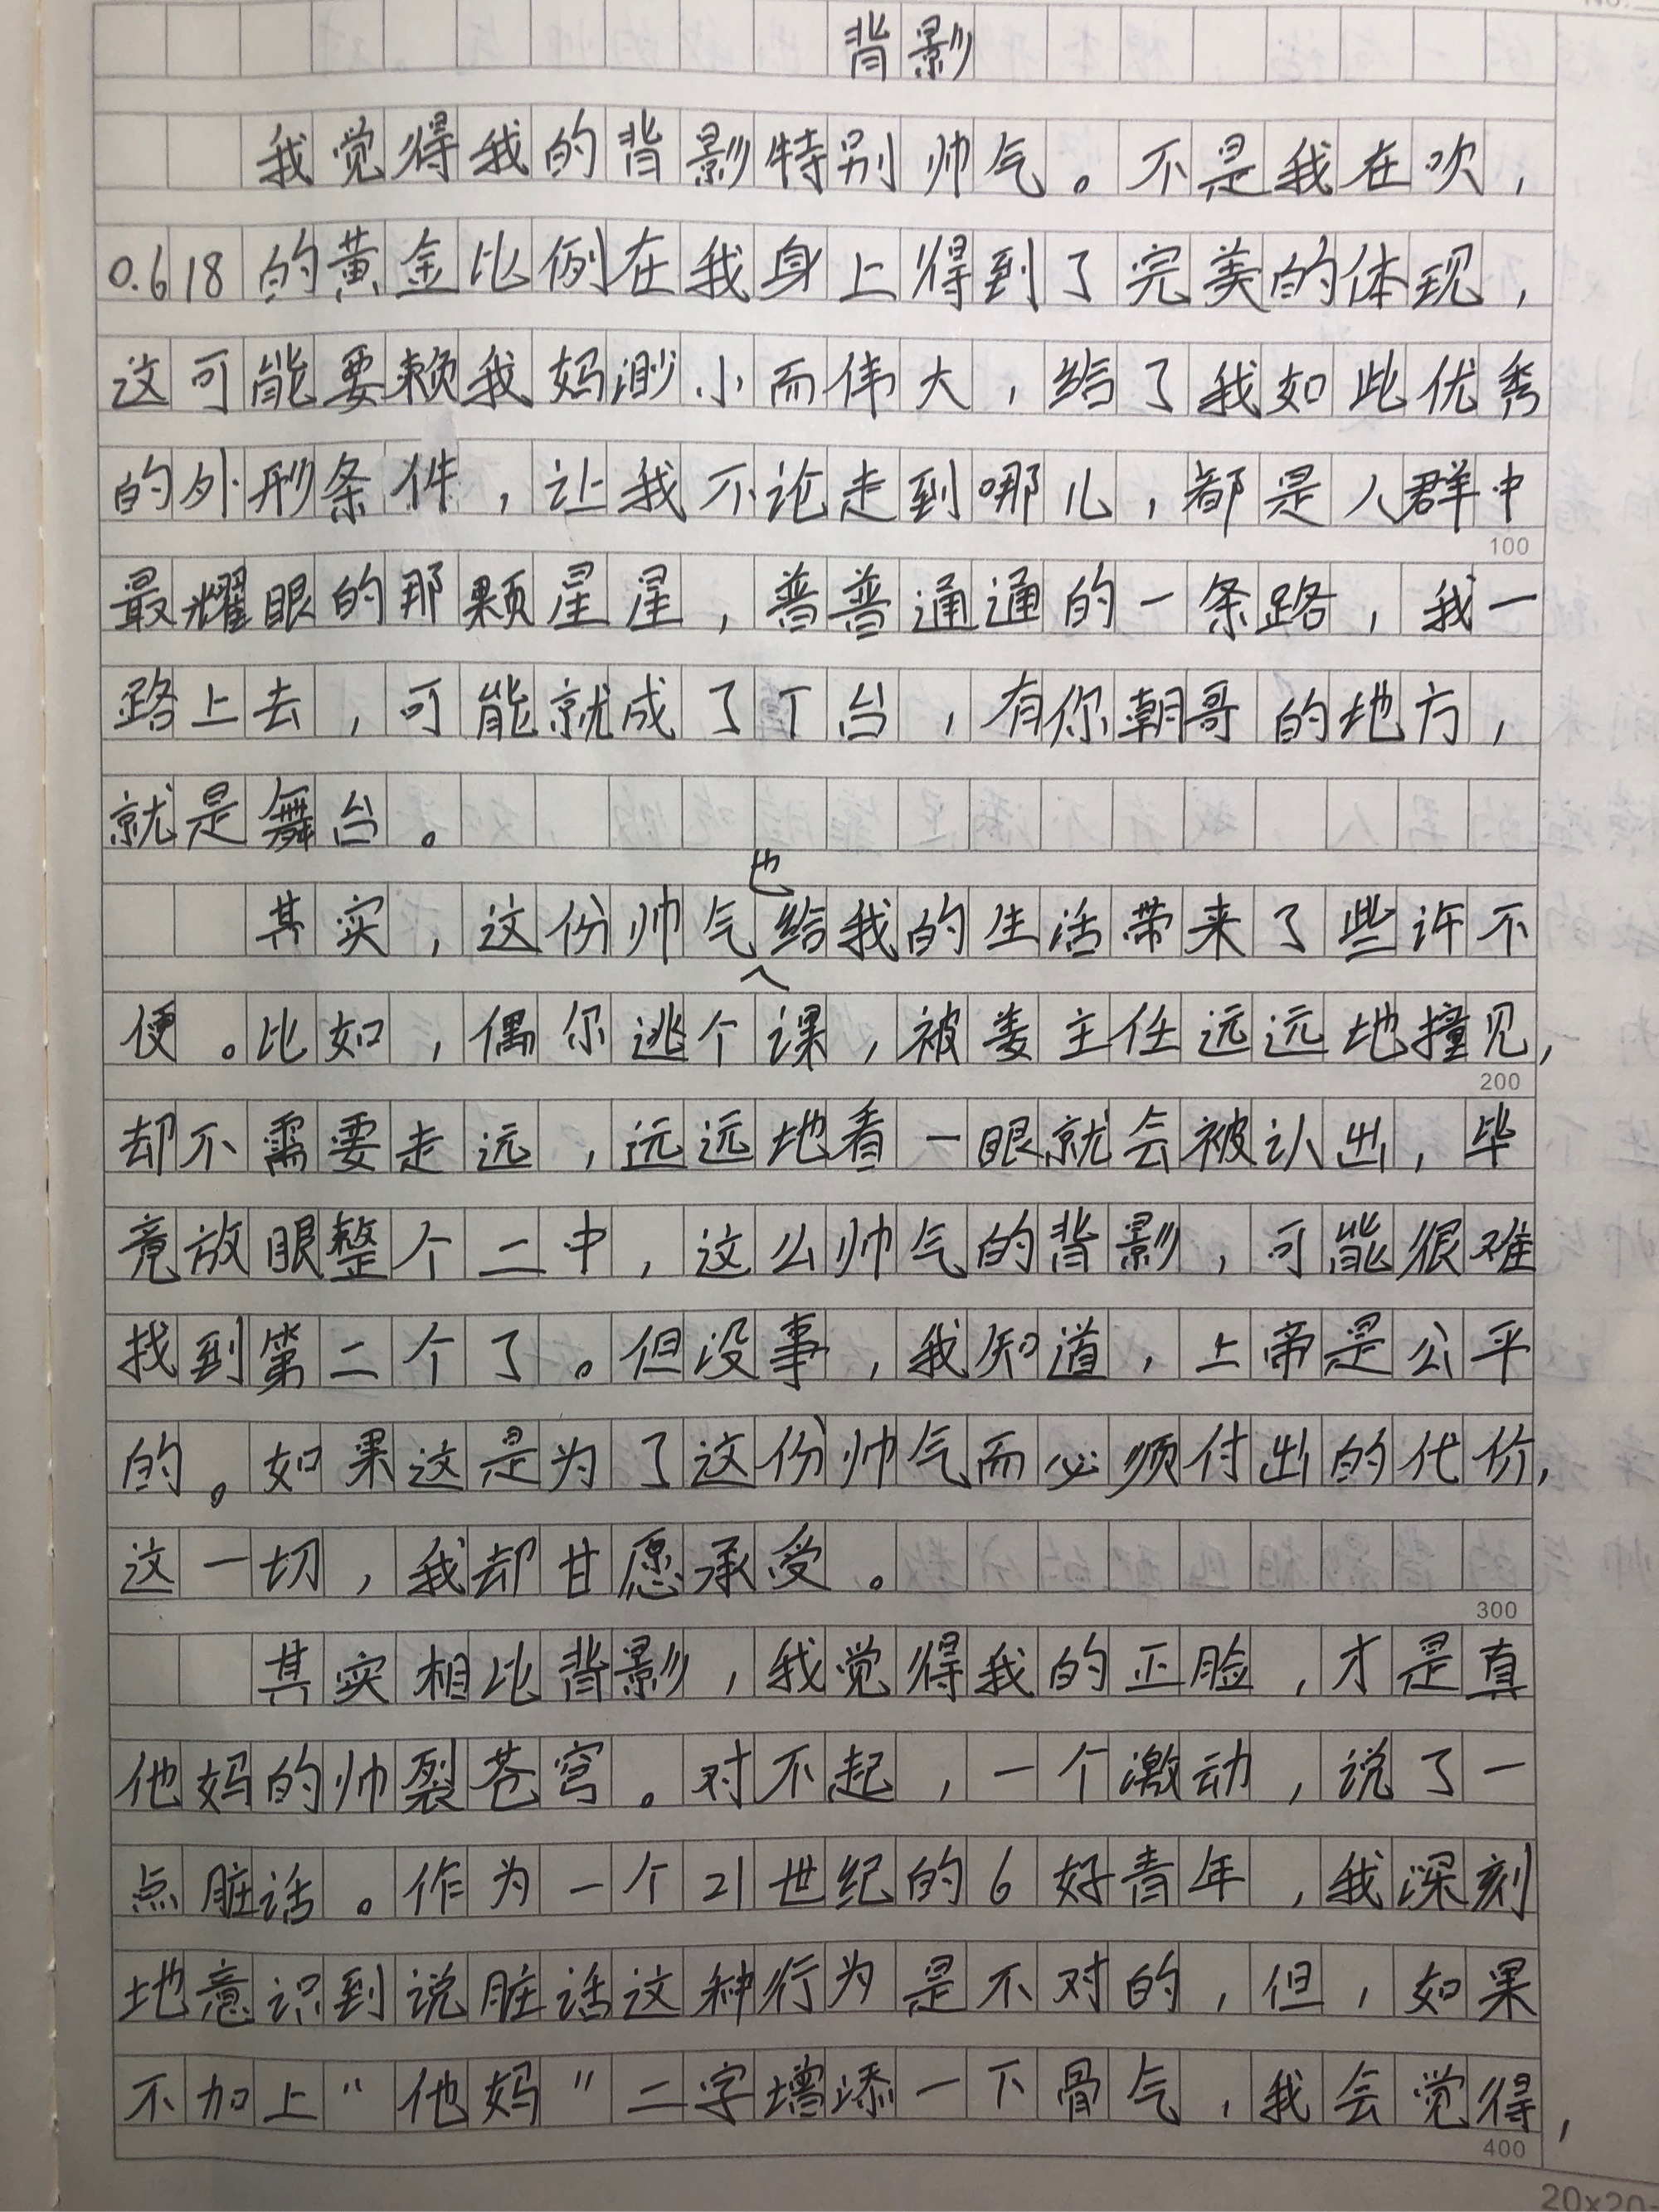 背影
我觉得我的背影特别帅气。不是我在吹，
0.618的黄金比例在我身上得到了完美的体现，
这可能要赖我妈渺小而伟大，给了我如此优秀
的外形条件，让我不论走到哪儿，都是人群中
100
最耀眼的那颗星星，普普通通的一条路，我一
路上去，可能就成了T台，有你朝哥的地方，
就是舞台。
其实，这份帅气也给我的生活带来了些许不
便。比如，偶尔逃个课，被娄主任远远地撞见，
200
却不需要走远，远远地看一眼就会被认出，毕
竟放眼整个二中，这么帅气的背影，可能很难
找到第二个了。但没事，我知道，上帝是公平
的。如果这是为了这份帅气而必须付出的代价，
这一切，我却甘愿承受。
300
其实相比背影，我觉得我的正脸，才是真
他妈的帅裂苍穹。对不起，一个激动，说了一
点脏话。作为一个21世纪的6好青年，我深刻
地意识到说脏话这种行为是不对的，但，如果
不加上"他妈"二字增添一下骨气，我会觉得，
400